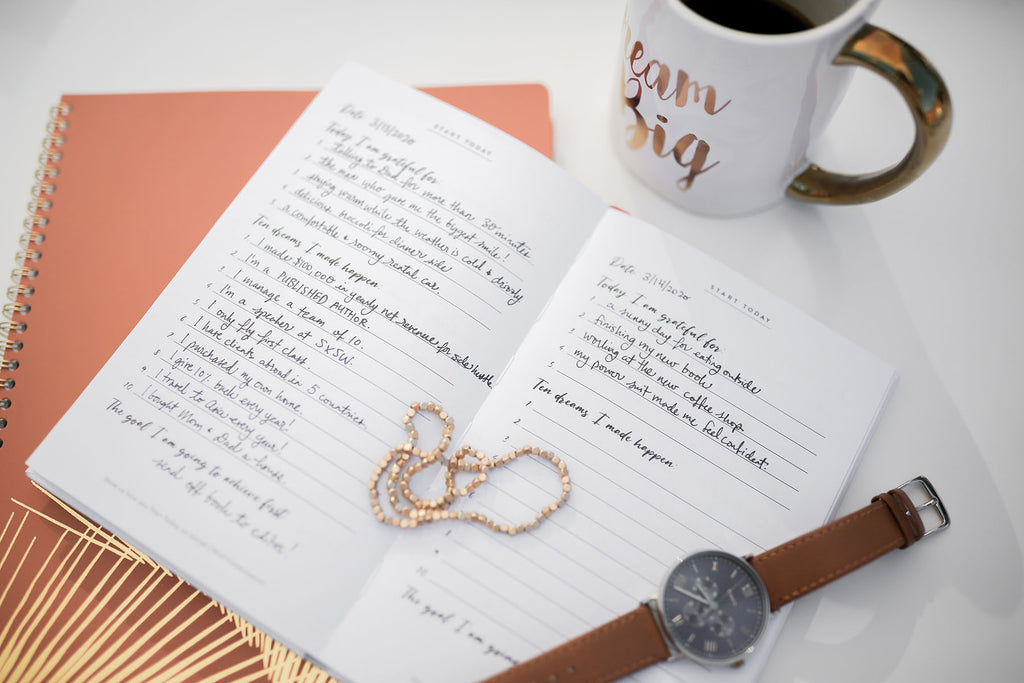 START TODAY
Date 3/13/2020
Today I am grateful for
1 talking to Dad for more than 30 minutes
2 the man who gave me the biggest smile!
3 staying warm while the weather is cold & drizzly
4 delicious broccoli for dinner side
5 a comfortable & roomy rental car.
Ten dreams I made happen.
1 I made $100,000 in yearly net revenue for side hustle
2 I'm a PUBLISHED AUTHOR.
3 I manage a team of 10.
4 I'm a speaker at SXSW.
5 I only fly first class.
6 I have clients abroad in 5 countries.
7 I purchased my own home.
8 I give 10% back every year!
9 I travel to Asia every year!
10 I bought Mom & Dad a house.
The goal I am going to achieve first
send off book to editor!
START TODAY
Date 3/14/2020
Today I am grateful for
1 a sunny day for eating outside
2 finishing my new book
3 working at the new coffee shop
4 my power suit made me feel confident.
5
Ten dreams I made happen.
1
2
3
9
10
The goal I am going
ream
Big